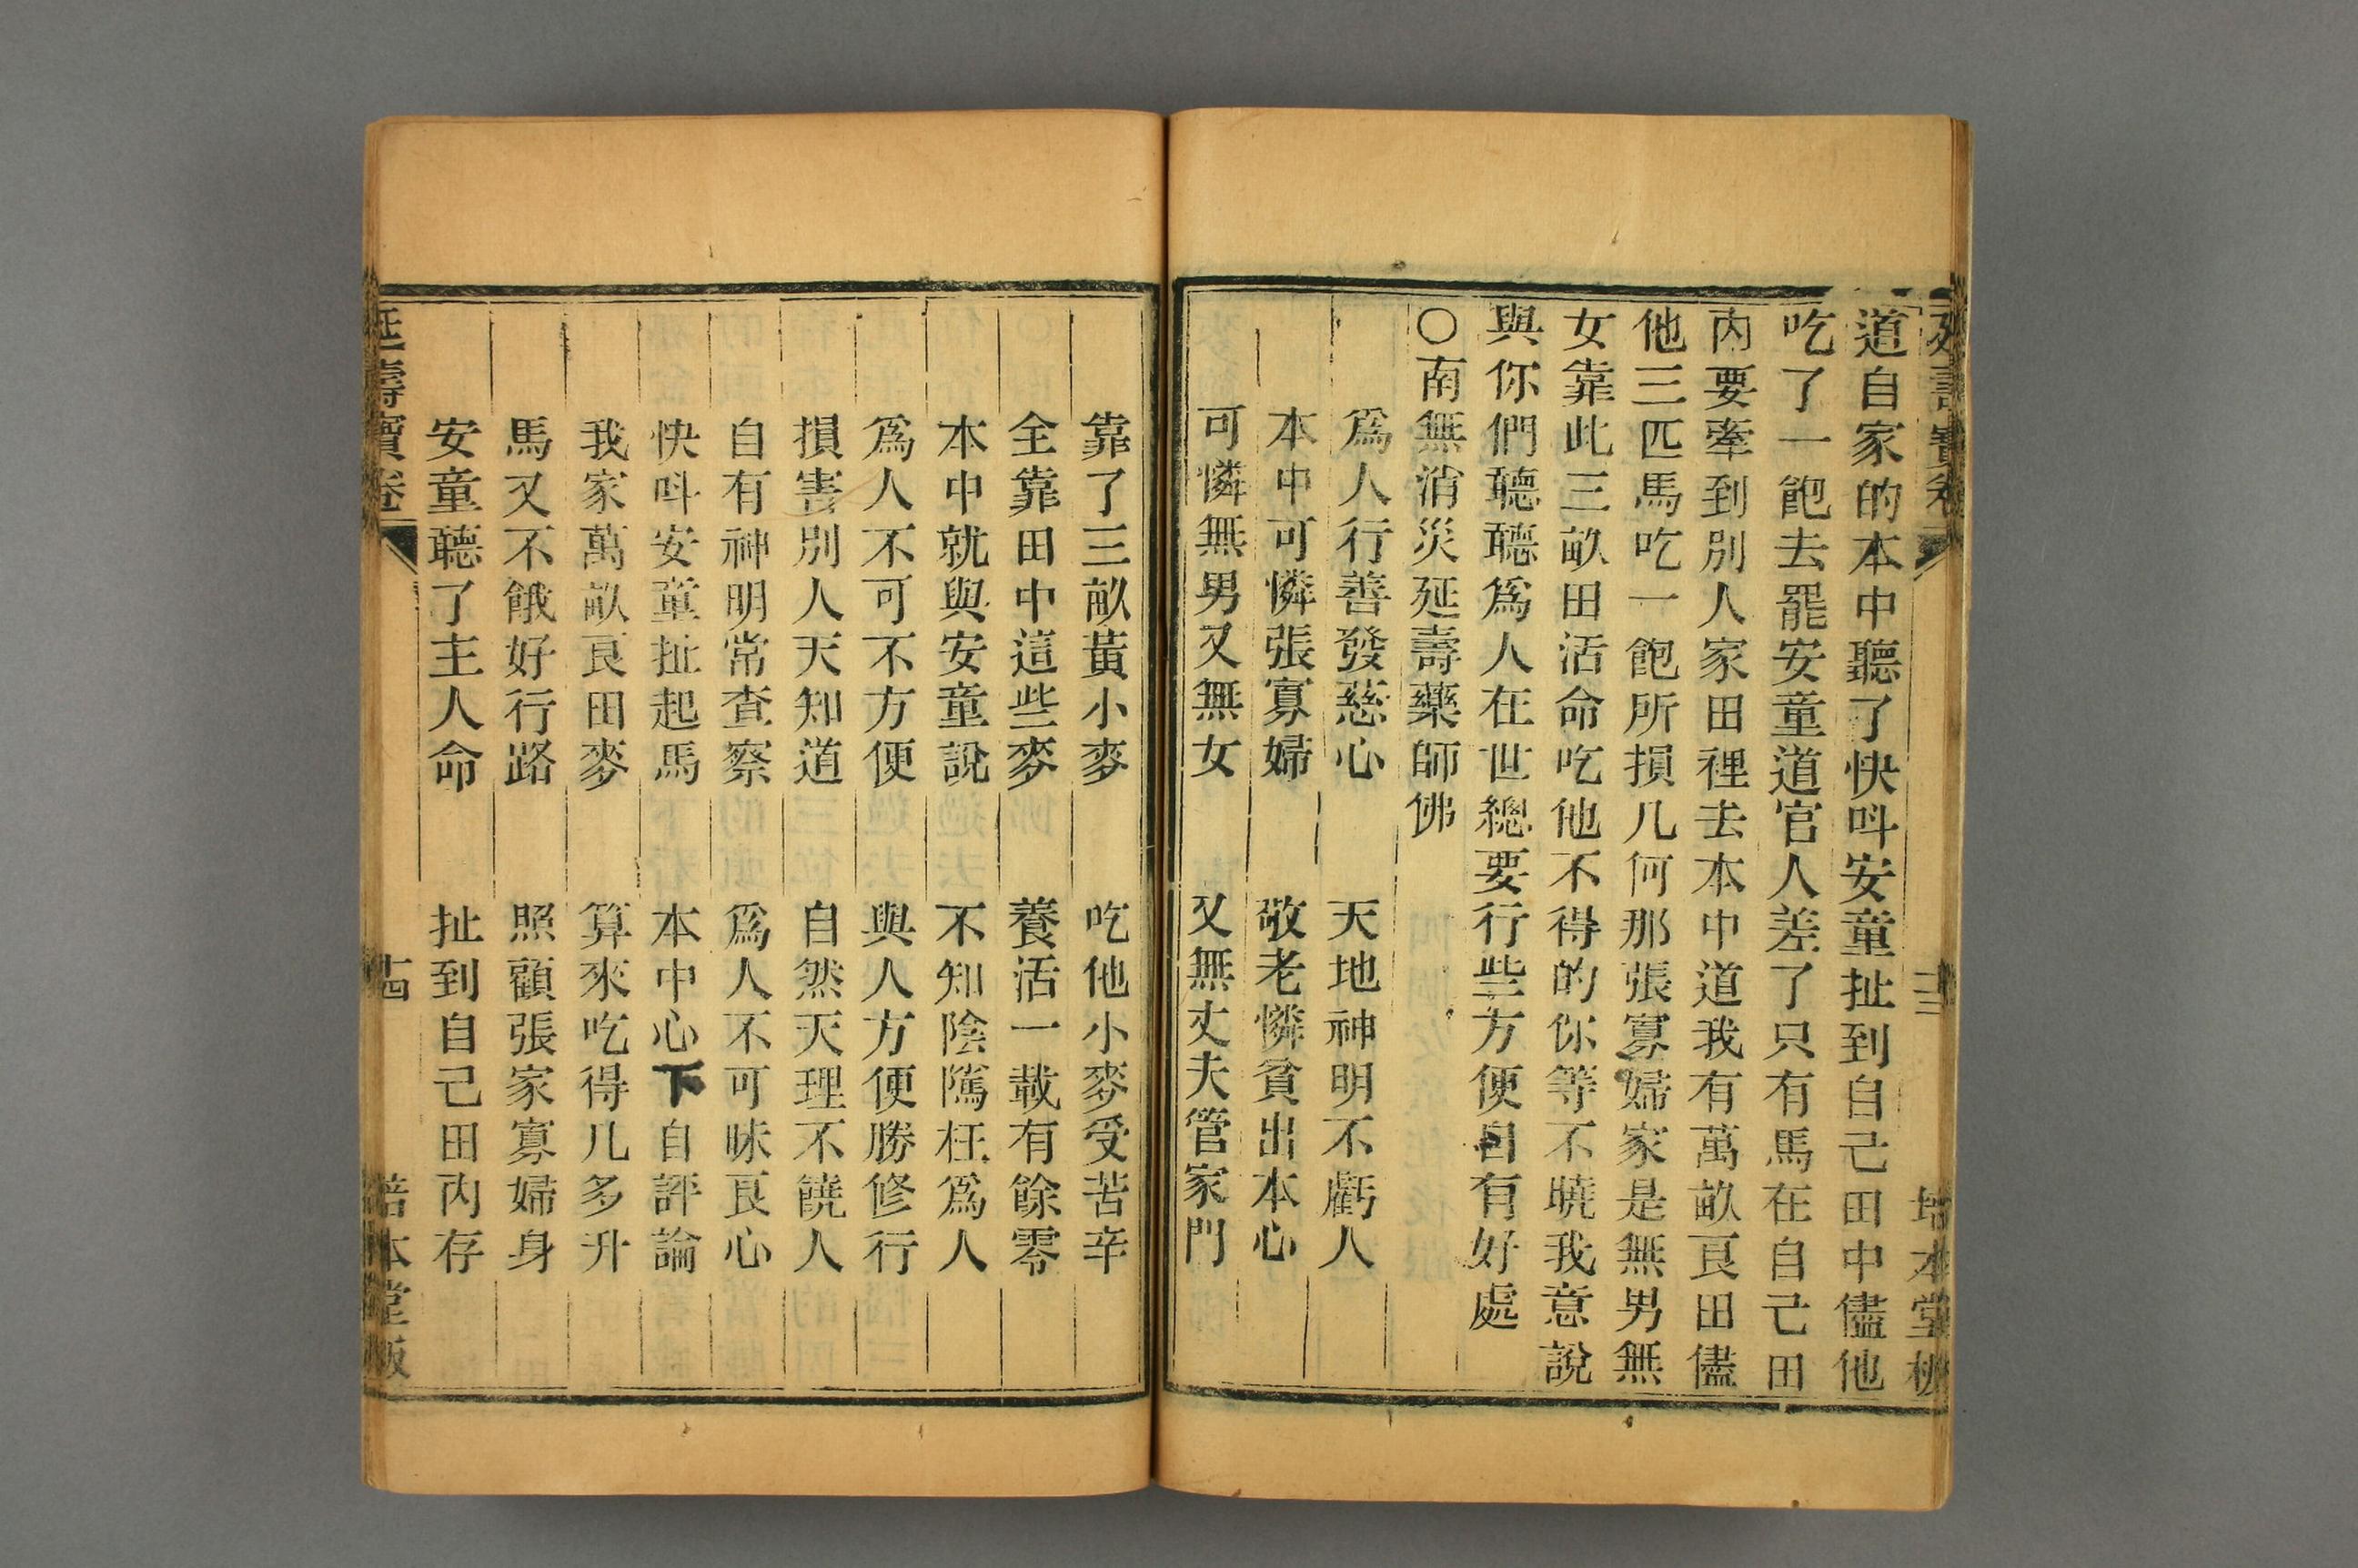 延壽寶卷
十三
培本堂板
道自家的本中聽了快呌安童扯到自己田中儘他
吃了一飽去罷安童道官人差了只有馬在自己田
內要牽到別人家田裡去本中道我有萬畝良田儘
他三匹馬吃一飽所損几何那張寡婦家是無男無
女靠此三畝田活命吃他不得的你等不曉我意說
與你們聽聽爲人在世總要行些方便自有好處
〇南無消災延壽藥師佛
爲人行善發慈心　天地神明不虧人
本中可憐張寡婦　敬老憐貧出本心
可憐無男又無女　又無丈夫管家門
靠了三畝黃小麥　吃他小麥受苦辛
全靠田中這些麥　養活一載有餘零
本中就與安童說　不知陰隲枉爲人
爲人不可不方便　與人方便勝修行
損害別人天知道　自然天理不饒人
自有神明常查察　爲人不可昧良心
快呌安童扯起馬　本中心下自評論
我家萬畝良田麥　算來吃得几多升
馬又不餓好行路　照顧張家寡婦身
安童聽了主人命　扯到自己田內存
延壽寶卷
十四
培本堂板